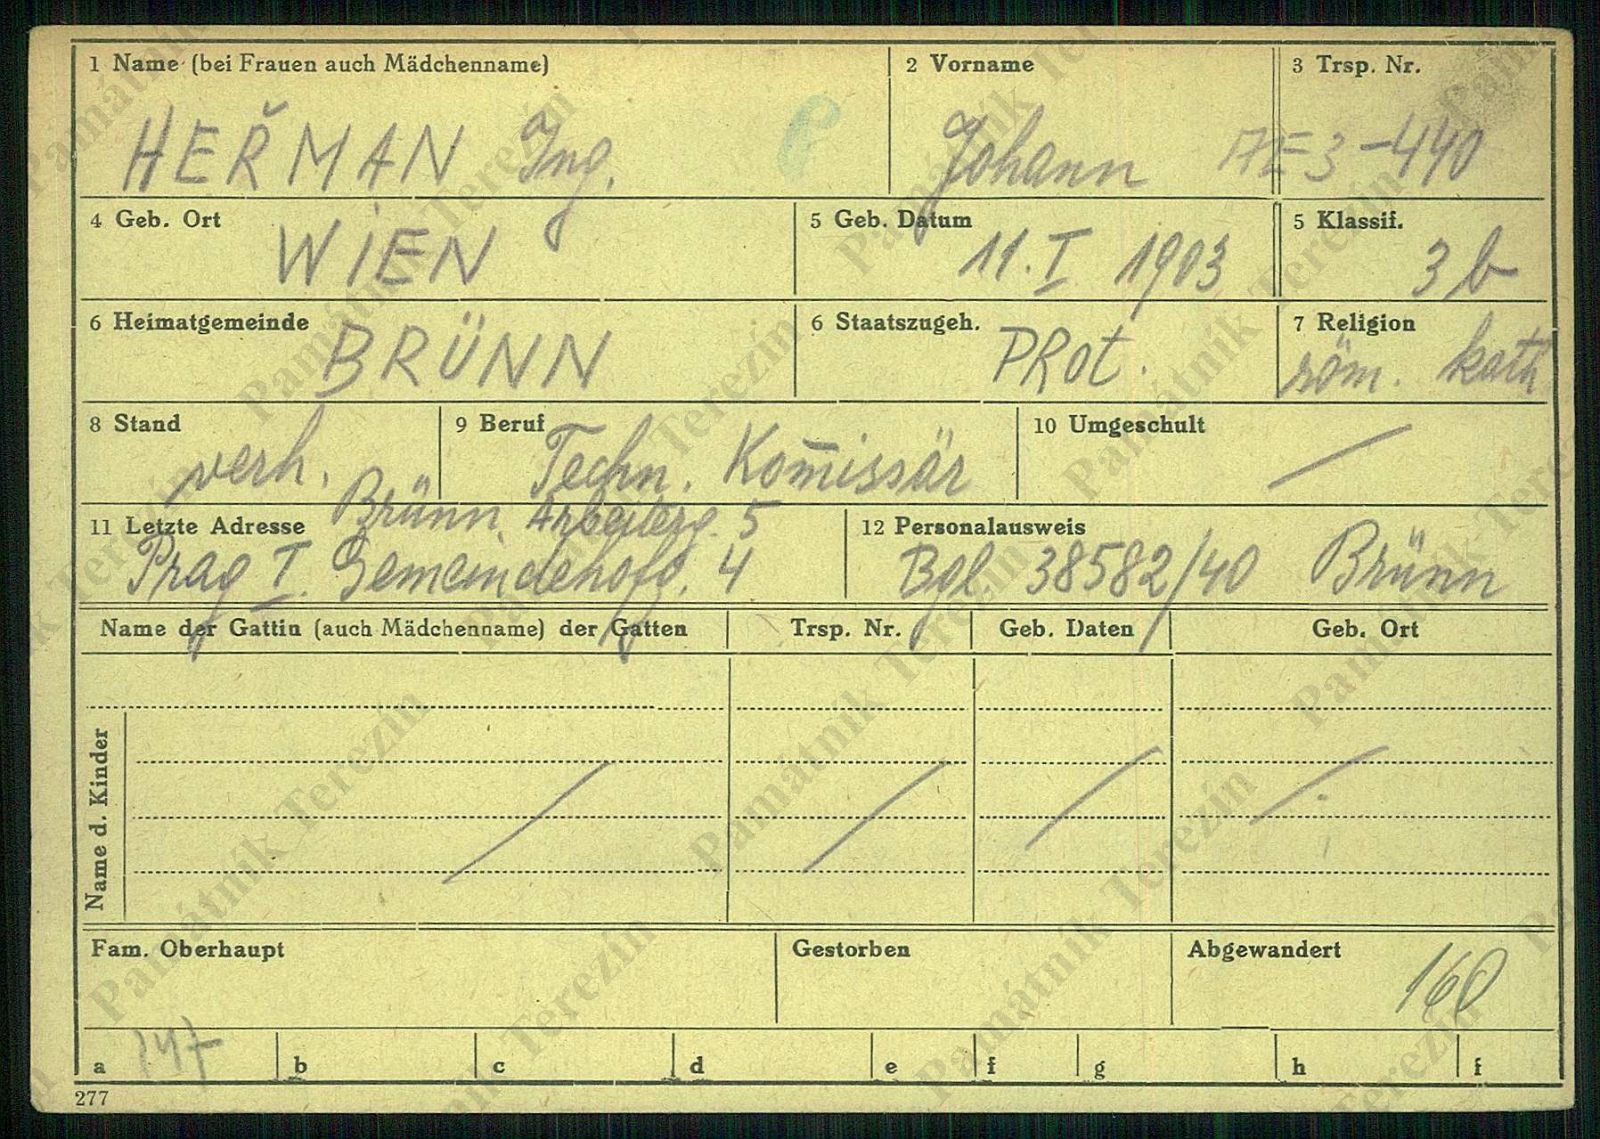 1 Name (bei Frauen auch Mädchenname)
HEŘMAN Ing.
2 Vorname
Johann
3 Trsp. Nr.
AE3-440
4 Geb. Ort
WIEN
5 Geb. Datum
11. I 1903
5 Klassif.
3b
6 Heimatgemeinde
BRÜNN
6 Staatszugeh.
PRot.
7 Religion
röm. kath
8 Stand
verh.
9 Beruf
Techn. Kom̄issär
10 Umgeschult
11 Letzte Adresse
Brünn, Arbeiterg. 5
Prag I. Gemeindehofg. 4
12 Personalausweis
Bgl 38582/40 Brünn
Name der Gattin (auch Mädchenname) der Gatten
Trsp. Nr.
Geb. Daten
Geb. Ort
Name d. Kinder
Fam. Oberhaupt
Gestorben
Abgewandert
160
a 147
b
c
d
e
f
g
h
f
277
Památník Terezín